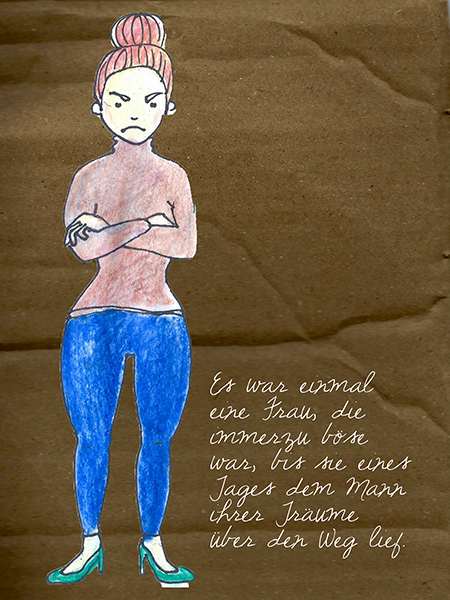 Es war einmal
eine Frau, die
immerzu böse
war, bis sie eines
Tages dem Mann
ihrer Träume
über den Weg lief.